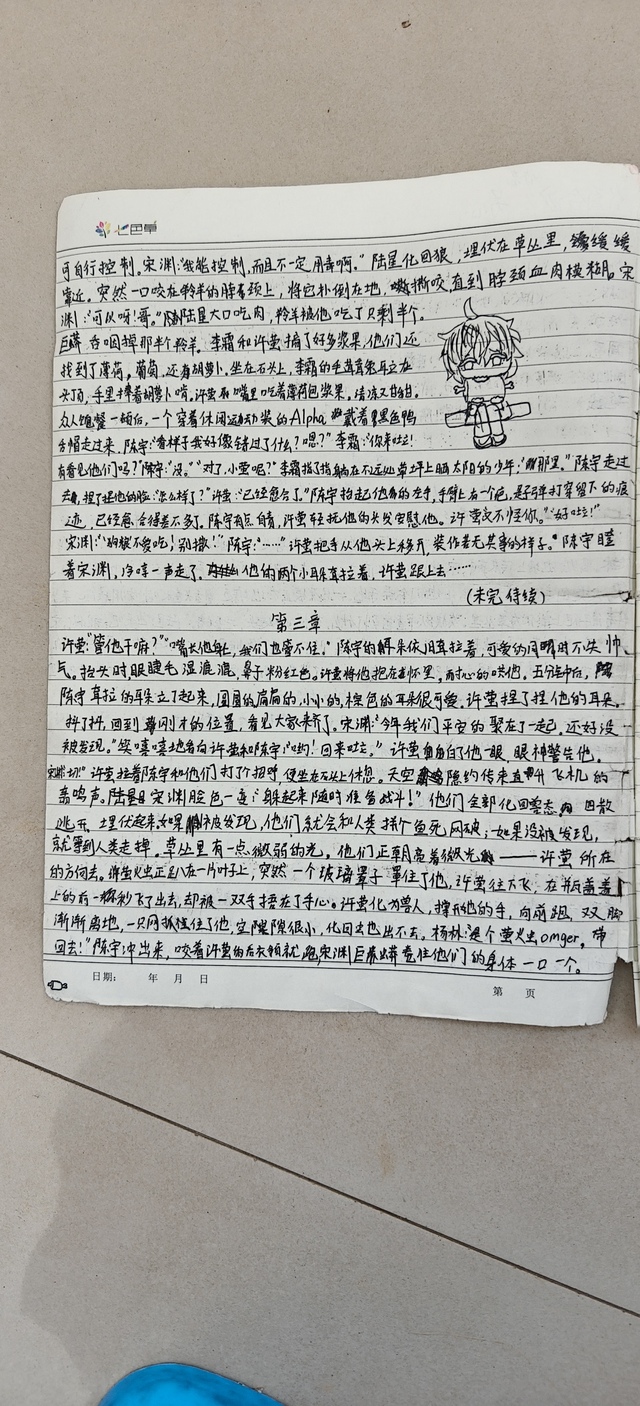 七色草
可自行控制。宋渊:"我能控制,而且不一定用毒啊。"陆星化回狼,埋伏在草丛里,缓缓
靠近。突然一口咬在羚羊的脖颈上,将它扑倒在地,撕咬,直到脖颈血肉模糊。宋
渊:"可以呀!哥。"陆星大口吃肉,羚羊被他吃了只剩半个。
巨蟒吞咽掉那半个羚羊。李霜和许萤摘了好多浆果,他们还
找到了薄荷,葡萄,还有胡萝卜。坐在石头上,李霜的垂茸兔耳立在
头顶,手里捧着胡萝卜啃。许萤嘴里吃着薄荷包浆果,清凉又甘甜。
众人饱餐一顿后,一个穿着休闲运动装的Alpha戴着黑色鸭
舌帽走过来,陈宇:"看样子我好像错过了什么?嗯?"李霜:"你来啦!
有看见他们吗?"陈宇:"没。""对了,小萤呢?"李霜指了指躺在不远处草坪上晒太阳的少年,"那里。"陈宇走过
去,捏了捏他的脸:"怎么样了?"许萤:"已经愈合了。"陈宇抬起他的左手,手臂上有一个疤,是子弹打穿留下的痕
迹,已经愈合得差不多了。陈宇有点自责,许萤轻抚他的头发安慰他。许萤:"又不怪你。""好啦!"
宋渊:"狗粮不爱吃!别撒!"陈宇:"……"许萤把手从他头上移开,装作若无其事的样子。陈宇瞪
着宋渊,冷哼一声走了。他的两个小耳朵耷拉着,许萤跟上去……
(未完待续)
第三章
许萤:"管他干嘛?""嘴长他身上,我们也管不住。"陈宇的耳朵依旧耷拉着,可爱的同时不失帅
气。抬头时眼睫毛湿漉漉,鼻子粉红色。许萤将他抱在怀里,耐心的哄他。五分钟后,
陈宇耷拉的耳朵立了起来,圆圆的扁扁的,小小的,棕色的耳朵很可爱。许萤捏了捏他的耳朵。
抖了抖,回到刚才的位置,看见大家来齐了。宋渊:"今年我们平安的聚在了一起,还好没
被发现。"笑嘻嘻地看向许萤和陈宇:"哟!回来啦。"许萤白了他一眼,眼神警告他。
许萤拉着陈宇和他们打了个招呼,便坐在石头上休息。天空隐约传来直升飞机的
轰鸣声。陆星宋渊脸色一变:"躲起来随时准备战斗!"他们全部化回兽态,四散
逃开,埋伏起来,如果被发现,他们就会和人类拼个鱼死网破;如果没被发现,
就等到人类走掉。草丛里有一点微弱的光。他们正朝亮着微光——许萤所在
的方向去。萤火虫正趴在一片叶子上,突然一个玻璃罩子罩住了他,许萤往下飞,在瓶盖盖
上的前一秒飞了出去,却被一双手捂在了手心。许萤化为兽人,撑开他的手,向前跑,双脚
渐渐离地,一只网抓住了他,空隙很小,化回去也出不去。杨林:"是个萤火虫omger,带
回去!"陈宇冲出来,咬着许萤的后衣领就跑,宋渊巨蟒卷住他们的身体一口一个。
日期: 年 月 日
第 页